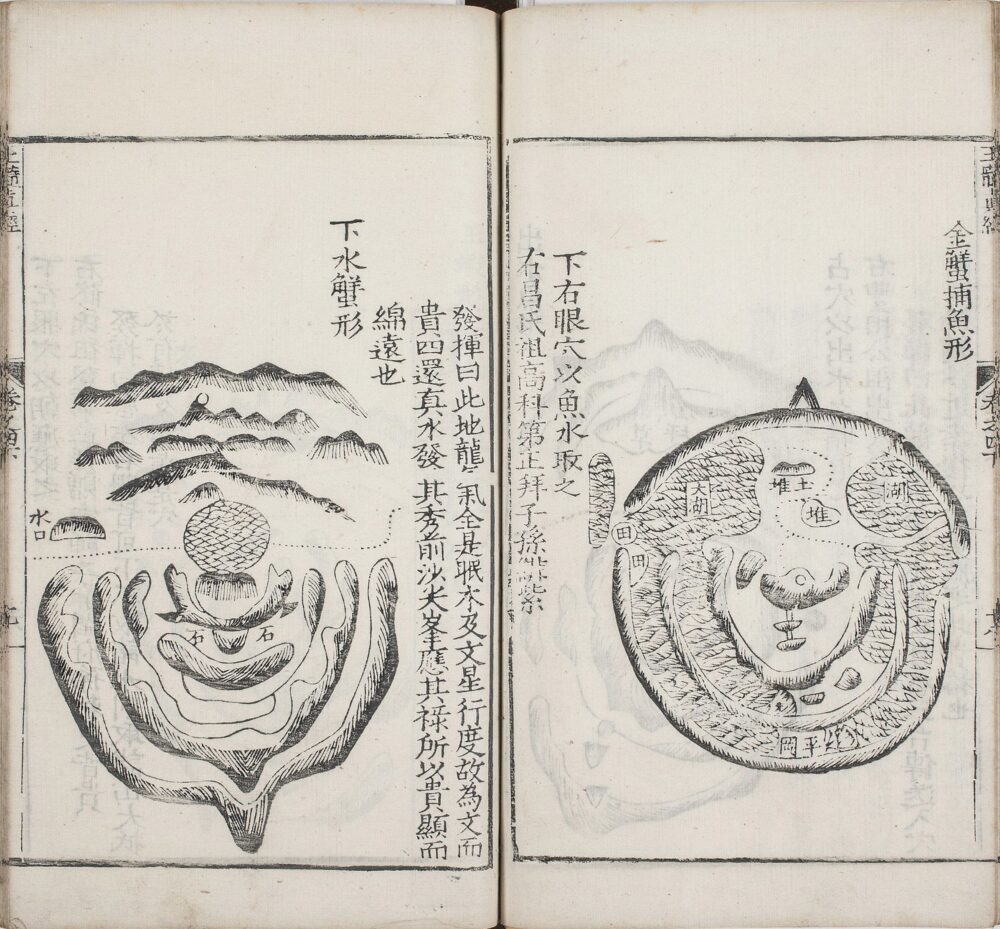 金蟹捕魚形
大湖
湖
土堆
堆
田
田
平岡
下右眼穴以魚水取之
右昌氏祖高科第正拜子孫緋紫
發揮曰此地龍氣全是眠木及文星行度故為文而
貴四還真水發其秀前沙尖峯應其祿所以貴顯而
綿遠也
下水蟹形
水口
石
石